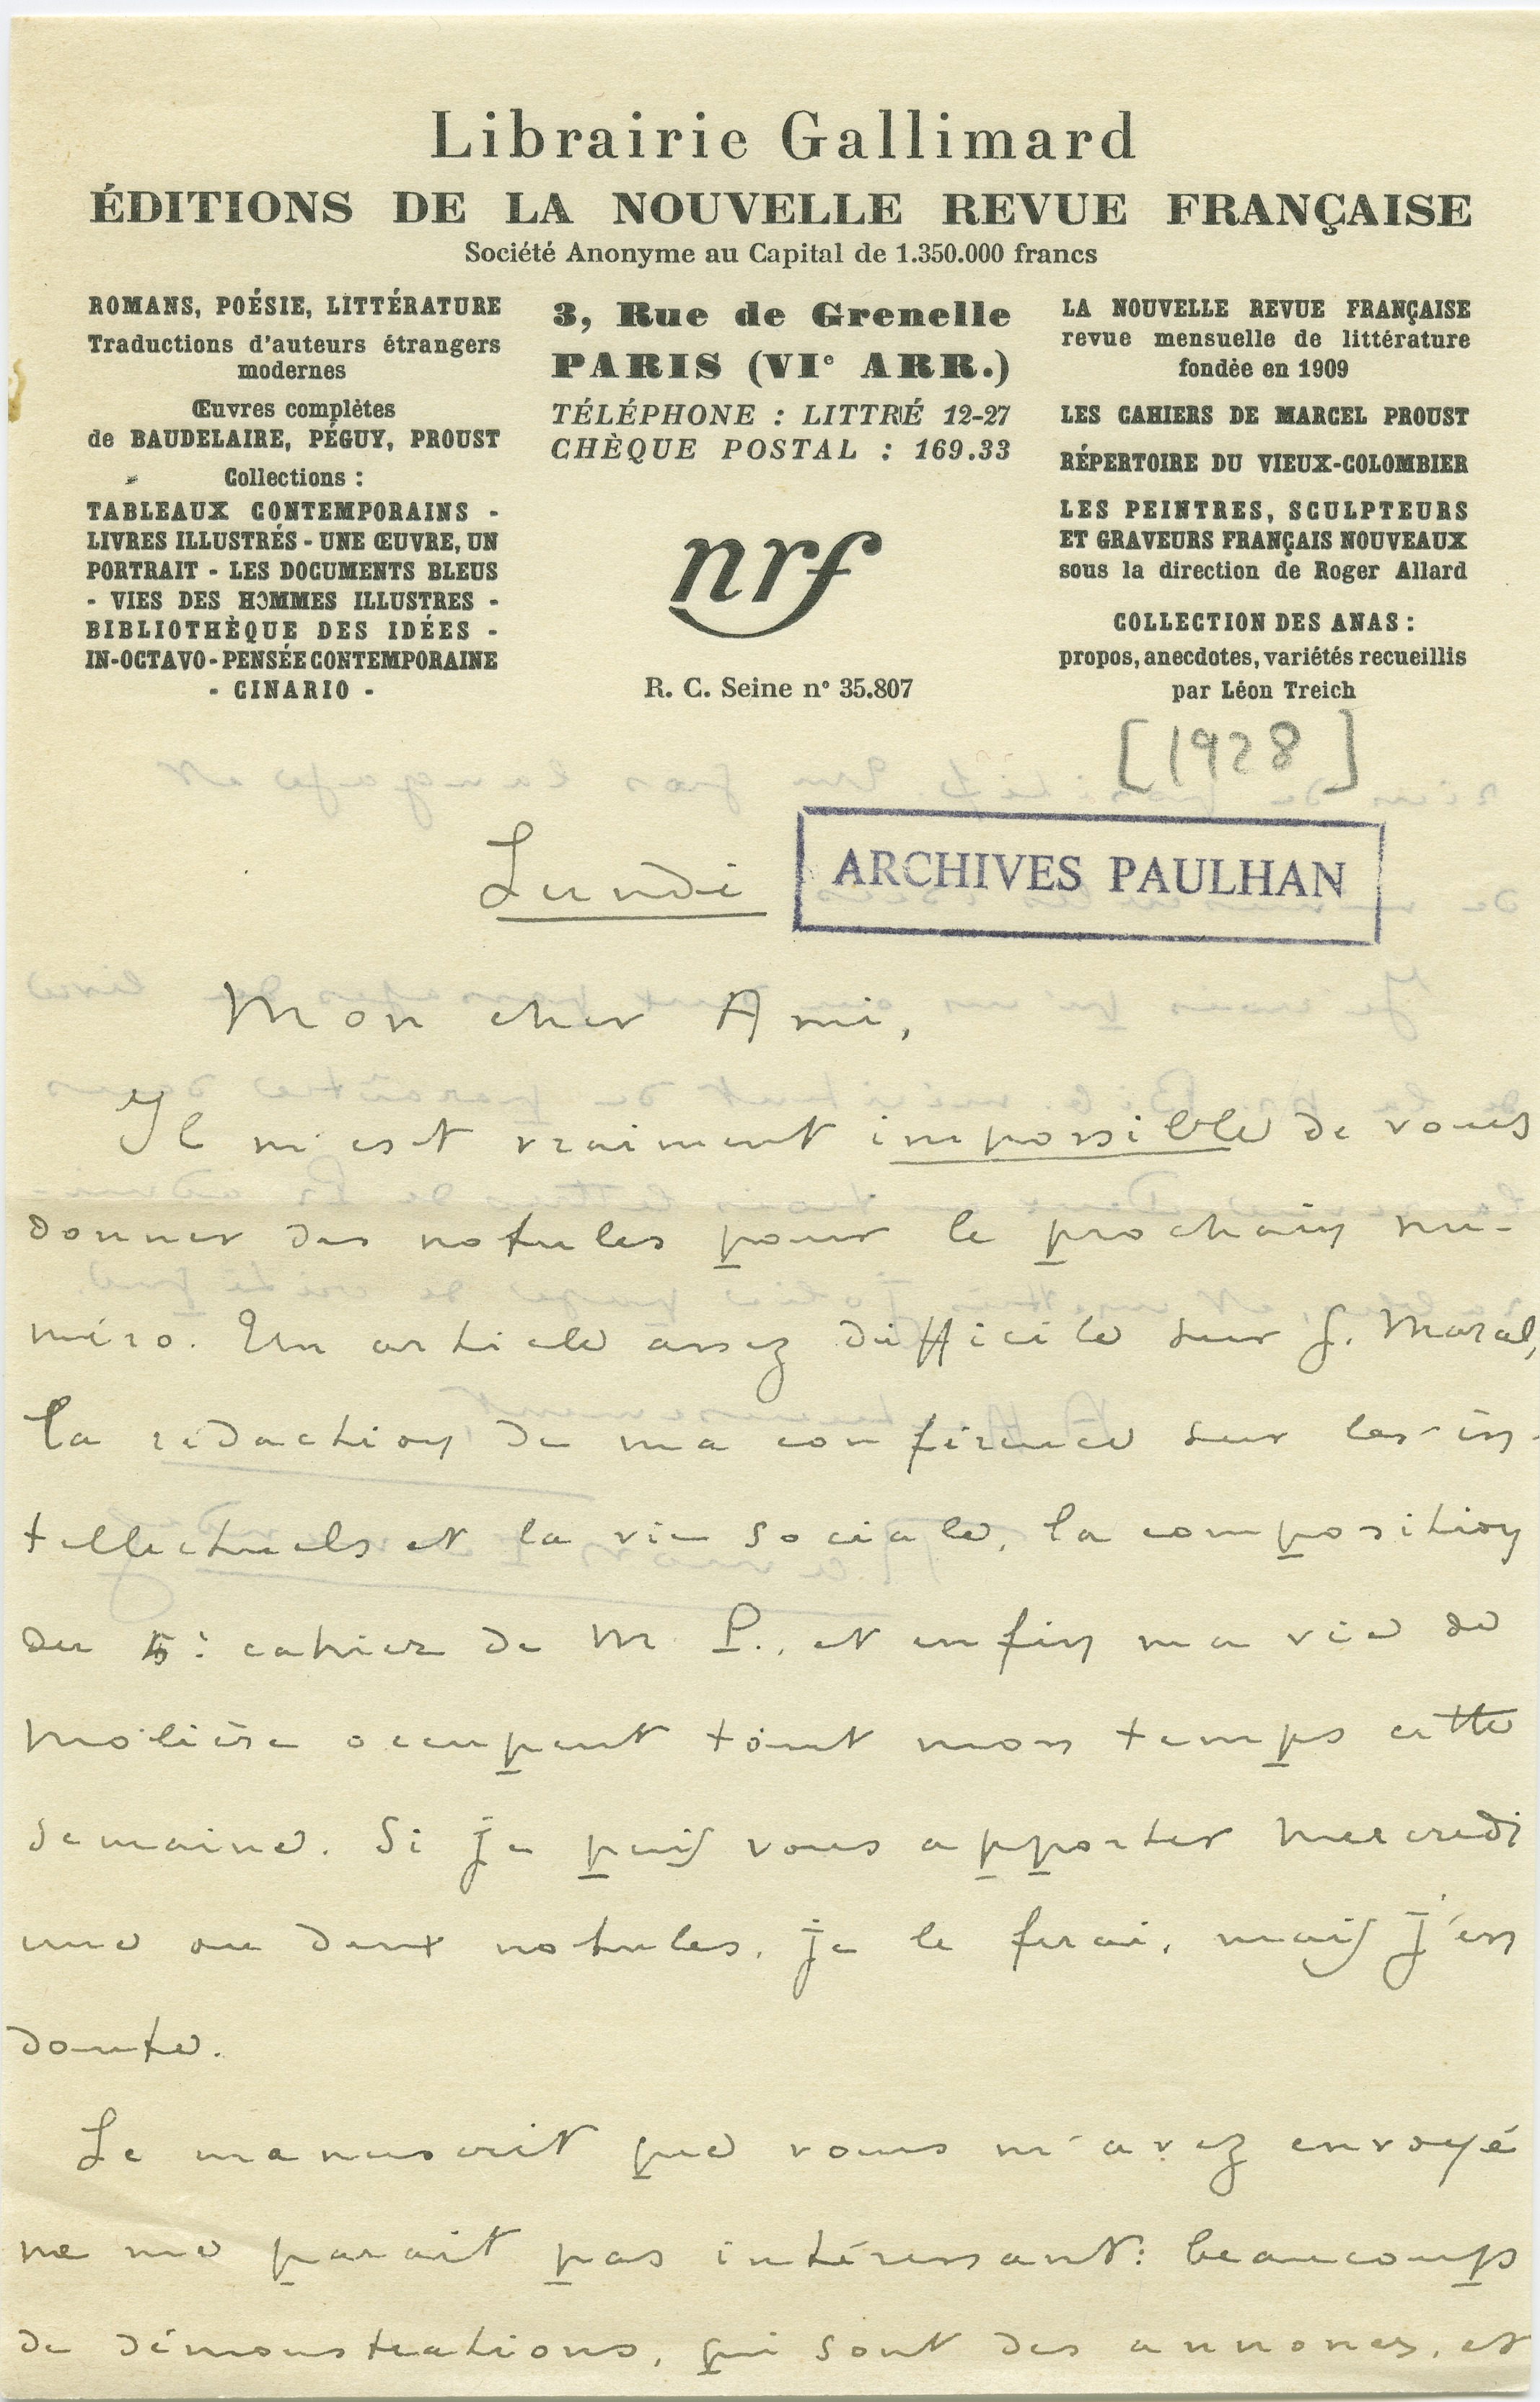 Librairie Gallimard
ÉDITIONS DE LA NOUVELLE REVUE FRANÇAISE
Société Anonyme au Capital de 1.350.000 francs
ROMANS, POÉSIE, LITTÉRATURE
Traductions d'auteurs étrangers
modernes
Œuvres complètes
de BAUDELAIRE, PÉGUY, PROUST
Collections :
TABLEAUX CONTEMPORAINS -
LIVRES ILLUSTRÉS - UNE ŒUVRE, UN
PORTRAIT - LES DOCUMENTS BLEUS
- VIES DES HOMMES ILLUSTRES -
BIBLIOTHÈQUE DES IDÉES -
IN-OCTAVO - PENSÉE CONTEMPORAINE
- CINARIO -
3, Rue de Grenelle
PARIS (VIe ARR.)
TÉLÉPHONE : LITTRÉ 12-27
CHÈQUE POSTAL : 169.33
nrf
R. C. Seine n° 35.807
LA NOUVELLE REVUE FRANÇAISE
revue mensuelle de littérature
fondée en 1909
LES CAHIERS DE MARCEL PROUST
RÉPERTOIRE DU VIEUX-COLOMBIER
LES PEINTRES, SCULPTEURS
ET GRAVEURS FRANÇAIS NOUVEAUX
sous la direction de Roger Allard
COLLECTION DES ANAS :
propos, anecdotes, variétés recueillis
par Léon Treich
[1928]
Lundi
ARCHIVES PAULHAN
Mon cher Ami,
Il m'est vraiment impossible de vous
donner des notules pour le prochain nu-
méro. Un article assez difficile sur
la rédaction de ma conférence sur les in-
tellectuels et la vie sociale, la composition
du 5e cahier de M. P., et enfin ma vie de
Molière occupent tout mon temps cette
semaine. Si je puis vous apporter mercredi
une ou deux notules, je le ferai, mais j'en
doute.
Le manuscrit que vous m'avez envoyé
ne me parait pas intéressant : beaucoup
de démonstrations, qui sont des annonces, et